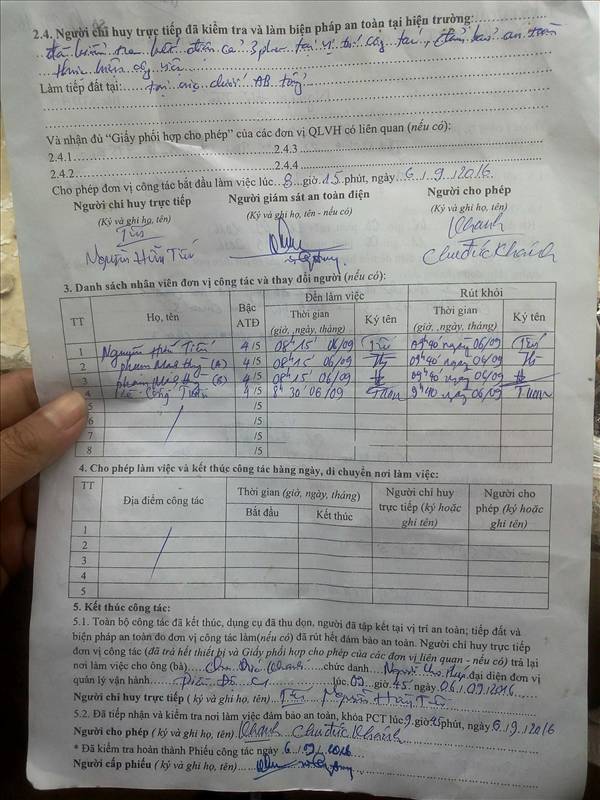 2.4. Người chỉ huy trực tiếp đã kiểm tra và làm biện pháp an toàn tại hiện trường:
đã kiểm tra hết điện cả 3 pha tại vị trí công tác, đảm bảo an toàn
thực hiện công việc
Làm tiếp đất tại: tại cực dưới AB tổng
Và nhận đủ “Giấy phối hợp cho phép” của các đơn vị QLVH có liên quan (nếu có):
2.4.1 2.4.3
2.4.2 2.4.4
Cho phép đơn vị công tác bắt đầu làm việc lúc 8 giờ 15 phút, ngày 6/9/2016
Người chỉ huy trực tiếp Người giám sát an toàn điện Người cho phép
(Ký và ghi họ, tên) (Ký và ghi họ, tên - nếu có) (Ký và ghi họ, tên)
Khanh
Nguyễn Hữu Chu Đức Khánh
3. Danh sách nhân viên đơn vị công tác và thay đổi người (nếu có):
TT Họ, tên Bậc ATĐ Đến làm việc Rút khỏi
Thời gian (giờ, ngày, tháng) Ký tên Thời gian (giờ, ngày, tháng) Ký tên
1 Nguyễn Hữu 4/5 08h15' 06/09 09h40 ngày 06/09
2 Phạm (A) 4/5 08h15 06/09 09h40 ngày 06/09
3 Phạm (B) 4/5 08h15 06/09 09h40 ngày 06/09
4 Công 4/5 8h30' 06/09 9h40 ngày 06/09
5 /5
6 /5
7 /5
8 /5
4. Cho phép làm việc và kết thúc công tác hàng ngày, di chuyển nơi làm việc:
TT Địa điểm công tác Thời gian (giờ, ngày, tháng) Người chỉ huy trực tiếp (ký hoặc ghi tên) Người cho phép (ký hoặc ghi tên)
Bắt đầu Kết thúc
1
2
3
4
5
5. Kết thúc công tác:
5.1. Toàn bộ công tác đã kết thúc, dụng cụ đã thu dọn, người đã tập kết tại vị trí an toàn; tiếp đất và
biện pháp an toàn do đơn vị công tác làm(nếu có) đã rút hết đảm bảo an toàn. Người chỉ huy trực tiếp
đơn vị công tác (đã trả hết thiết bị và Giấy phối hợp cho phép của các đơn vị liên quan - nếu có) trả lại
nơi làm việc cho ông (bà) Chu Đức Khanh chức danh Người cho phép đại diện đơn vị
quản lý vận hành lúc 09 giờ 45 ngày 06/09/2016
Người chỉ huy trực tiếp ( ký và ghi họ, tên) Nguyễn Hữu
5.2. Đã tiếp nhận và kiểm tra nơi làm việc đảm bảo an toàn, khóa PCT lúc 9 giờ phút, ngày 6/9/2016
Người cho phép ( ký và ghi họ, tên) Khanh Chu Đức Khánh
* Đã kiểm tra hoàn thành Phiếu công tác ngày 6/09/2016
Người cấp phiếu ( ký và ghi họ, tên)